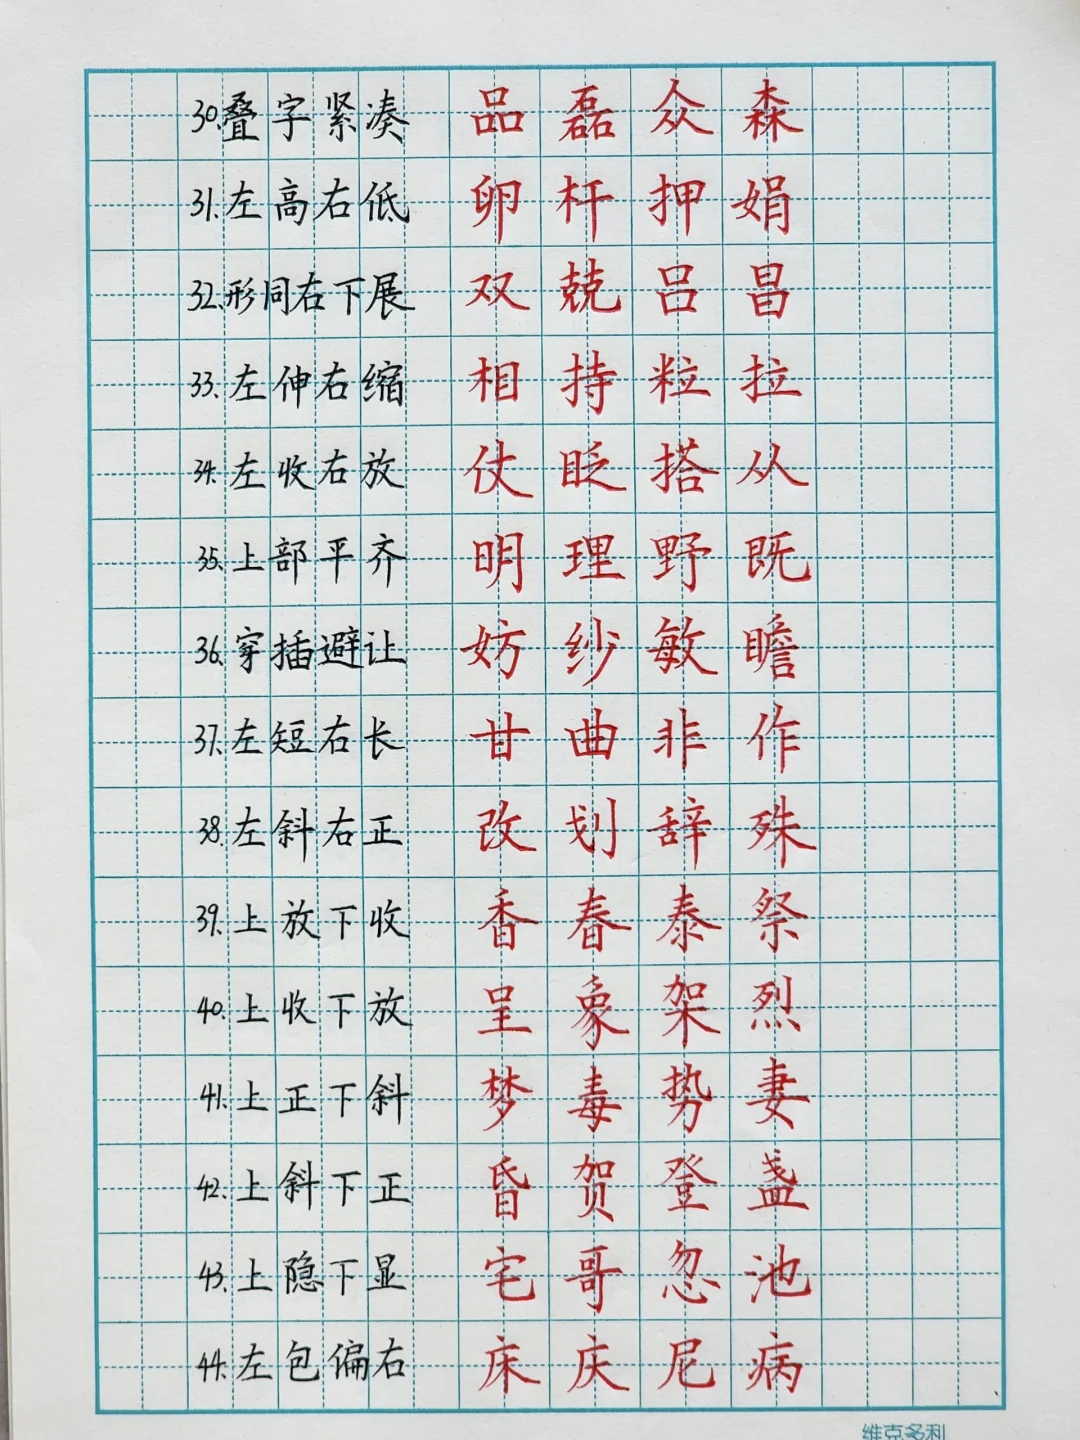 30.叠字紧凑 品 磊 众 森
31.左高右低 卵 杆 押 娟
32.形同右下展 双 兢 吕 昌
33.左伸右缩 相 持 粒 拉
34.左收右放 仗 眨 搭 从
35.上部平齐 明 理 野 既
36.穿插避让 妨 纱 敏 瞻
37.左短右长 甘 曲 非 作
38.左斜右正 改 划 辞 殊
39.上放下收 香 春 泰 祭
40.上收下放 呈 象 架 烈
41.上正下斜 梦 毒 势 妻
42.上斜下正 昏 贺 登 盏
43.上隐下显 宅 哥 忽 池
44.左包偏右 床 庆 尼 病
维克多利